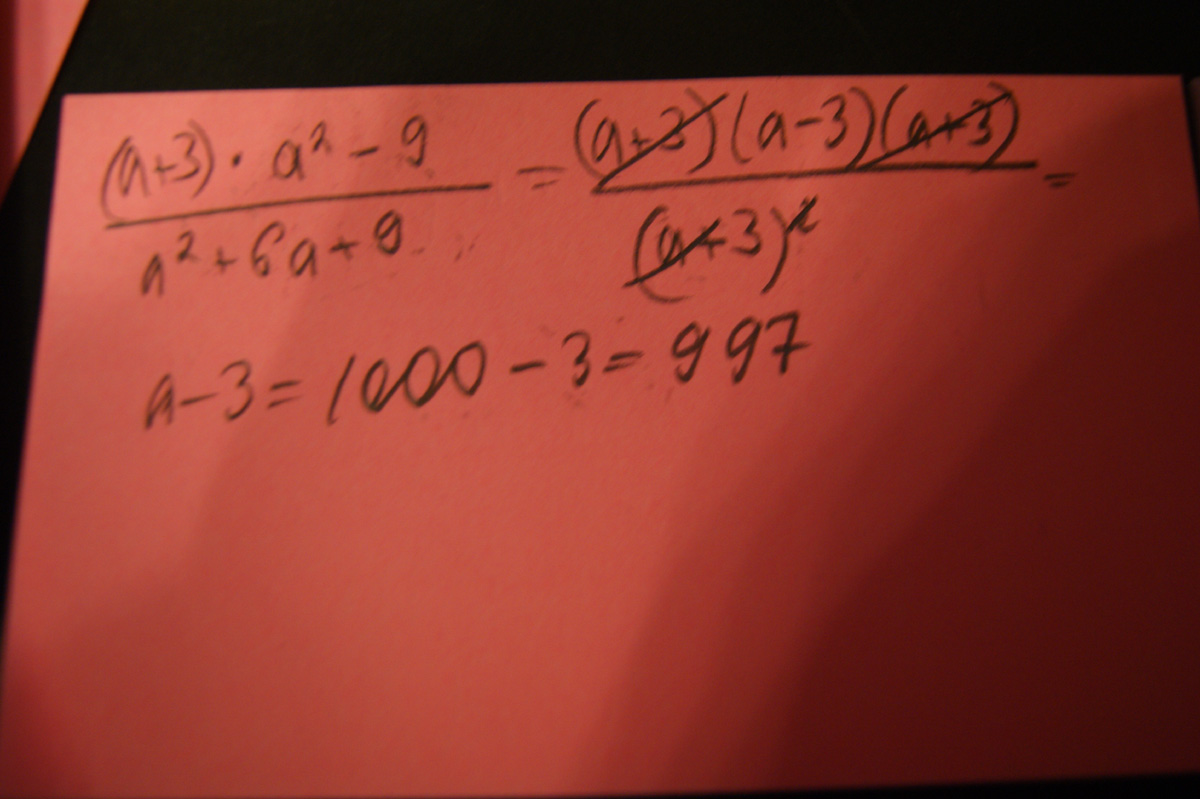 (a+3)·a²-9 / a²+6a+9 = (a+3)(a-3)(a+3) / (a+3)² =
a-3=1000-3=997